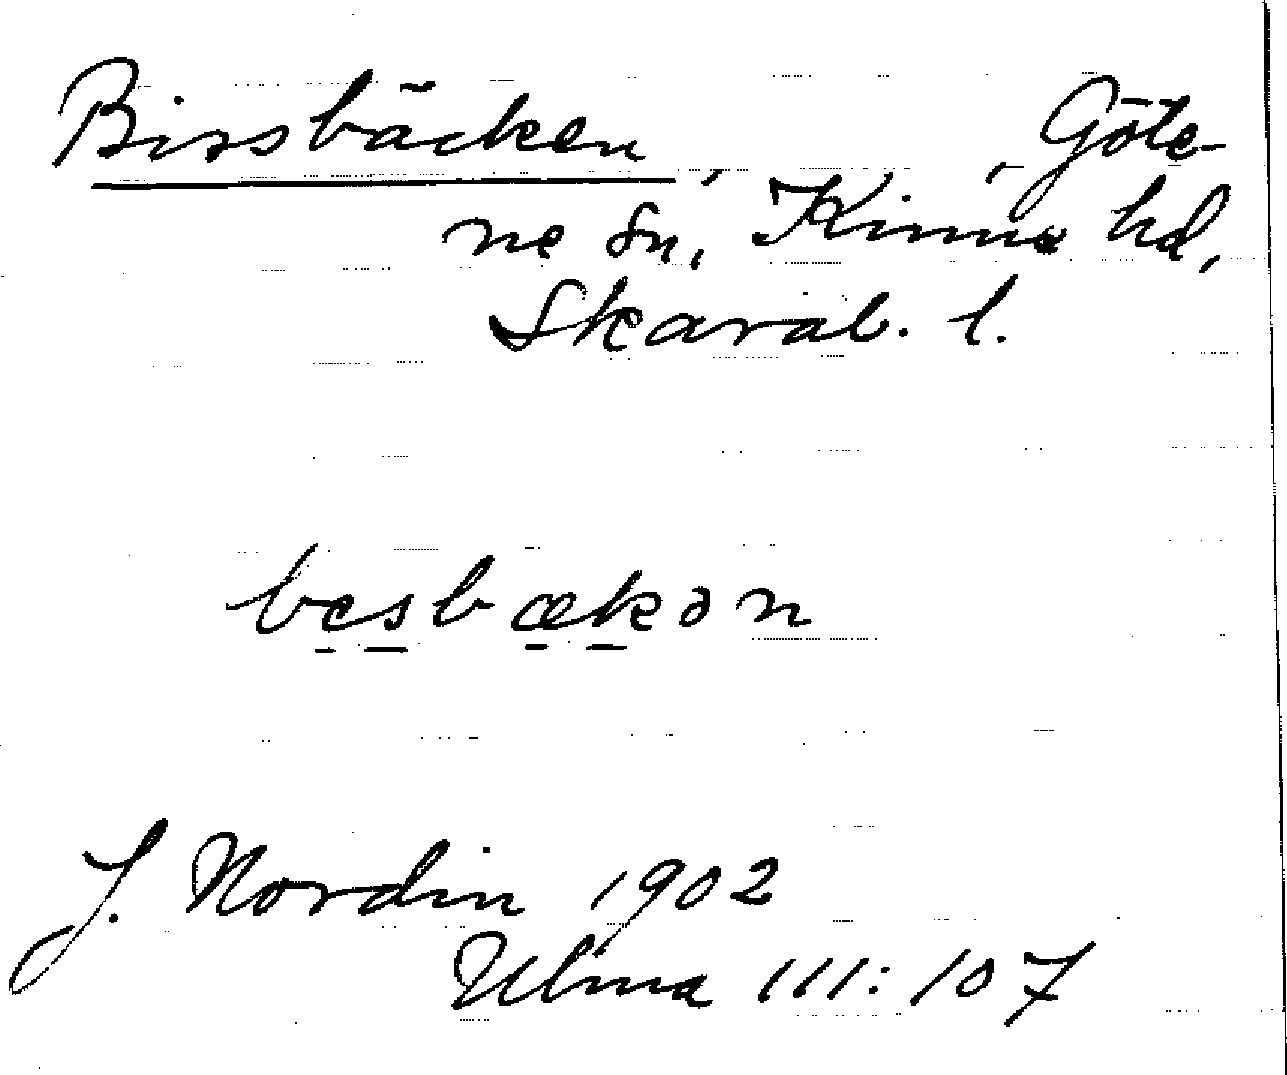 Bissbäcken, , Göte-
ne sn, Kinne hd,
Skarab. l.
besbækən
J. Nordin 1902
Ulma 111:107